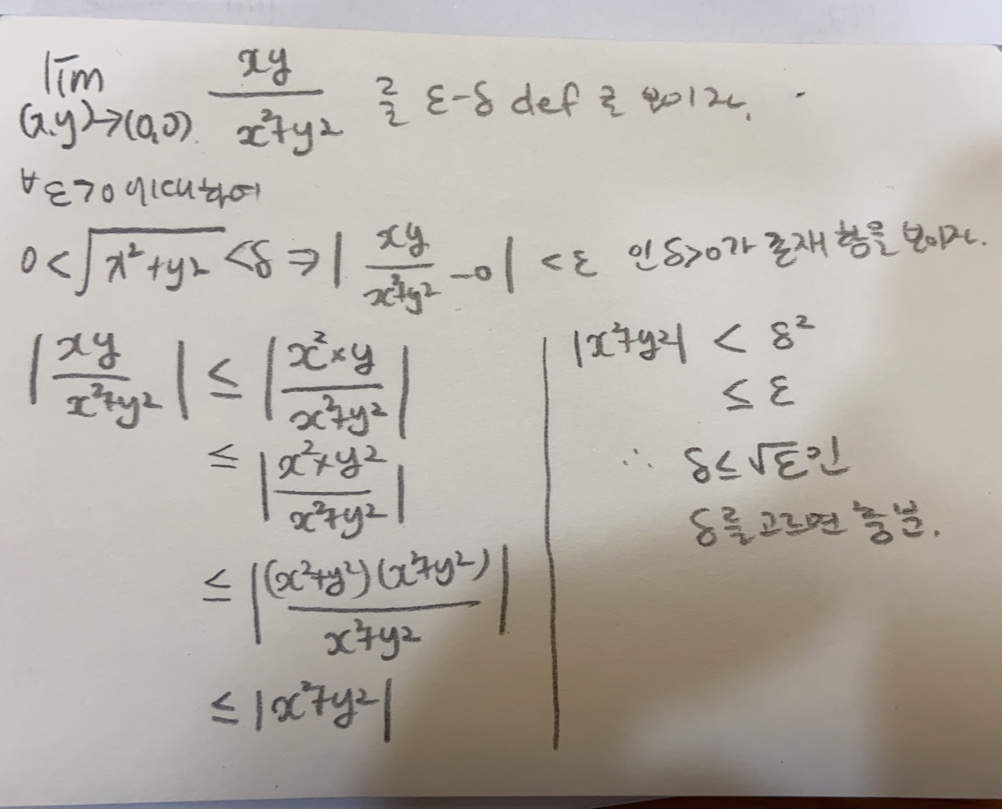 lim (x,y)→(0,0) xy / x²+y² 를 ε-δ def 로 보이자.
∀ε>0 에대하여
0<√x²+y² <δ ⇒ | xy / x²+y² -0 | <ε 인 δ>0가 존재함을 보이자.
| xy / x²+y² | ≤ | x²×y / x²+y² |
≤ | x²×y² / x²+y² |
≤ | (x²+y²)(x²+y²) / x²+y² |
≤ |x²+y²|
|x²+y²| < δ²
≤ ε
∴ δ≤√ε인
δ를 고르면 충분.